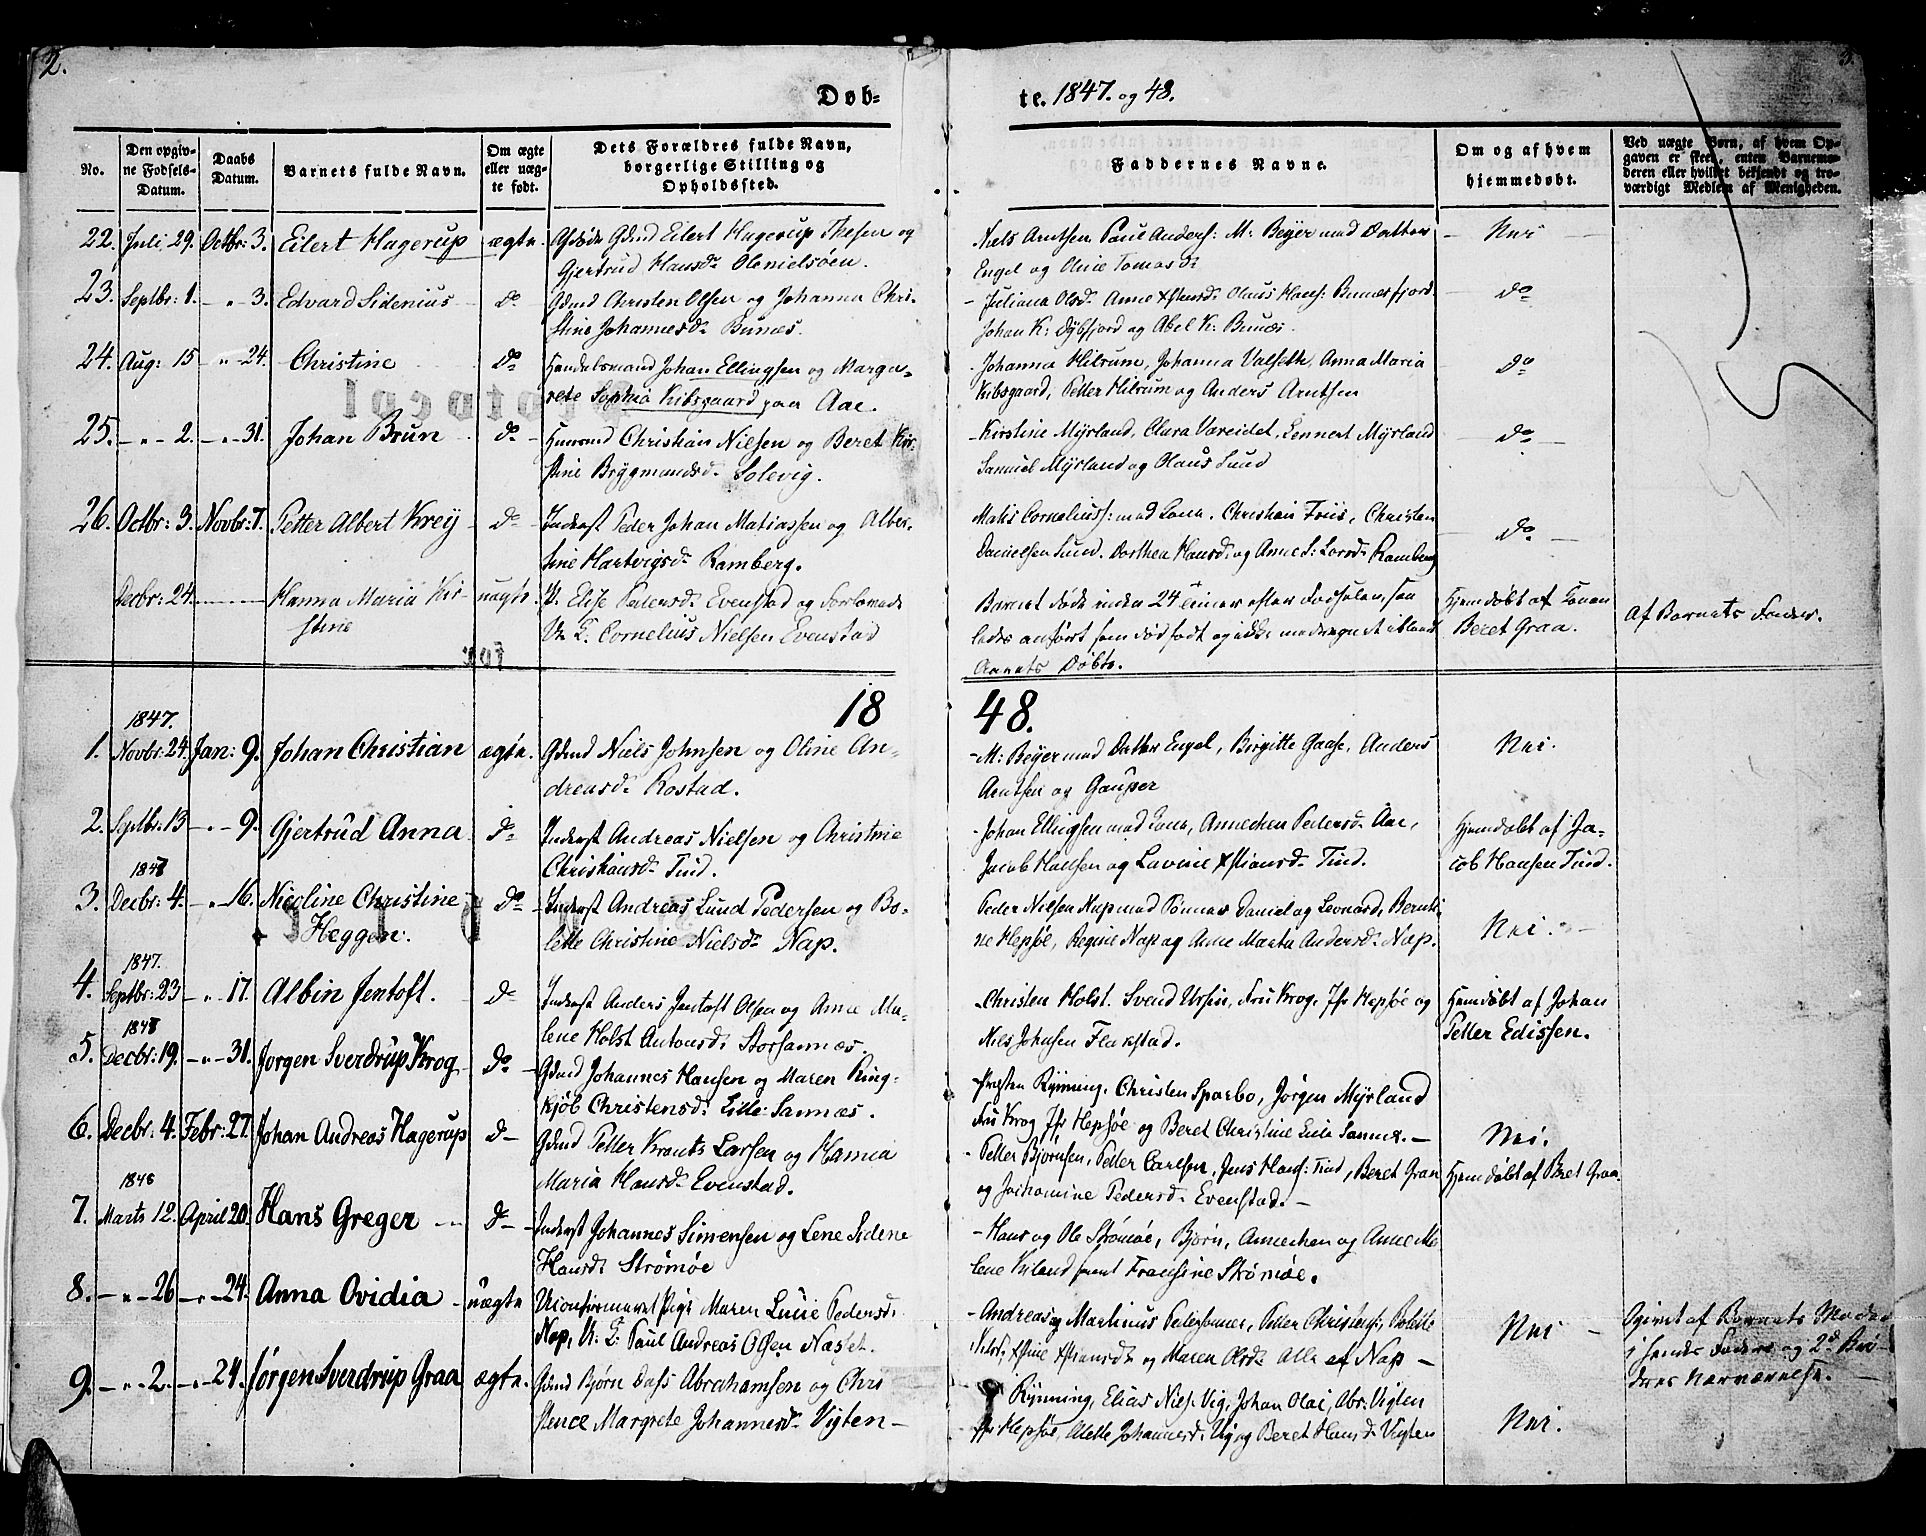 2.
3.
Døb-
te. 1847. og 48.
No.
Den opgiv-
ne Fødsels-
Datum.
Daabs
Datum.
Barnets fulde Navn.
Om ægte
eller uæg-
te født.
Dets Forældres fulde Navn,
borgerlige Stilling og
Opholdssted.
Faddernes Navne.
Om og af hvem
hjemmedøbt.
Ved uægte Børn, af hvem Op-
gaven er skeet, enten Barnemo-
deren eller hvilket bekjendt og tro-
værdigt Medlem af Menigheden.
22. Juli 29. Octbr: 3. Eilert Hagerup ægte. Gdmd Eilert Hagerup Thesen og
Gjertrud Hansdr. Olenielsøen.
Niels Arntsen Poul Anders: M: Beyer med Datter
Engel og Oline Tomasdr
Nei
23. Septbr: 1. - " - 3. Edvard Sidenius do Gdmd Christen Olsen og Johanna Chri-
stine Johannesdr. Bunæs.
- Juliana Olsdr. Anne Xstensdr. Olaus Hans: Bunesfjord.
Johan K: Dybfjord og Abel K: Bunæs.
do
24. Aug: 15 - " - 24. Christine do Handelsmand Johan Ellingsen og Marga-
rete Sophia Kibsgaard paa Aae.
Johanna Hilrum, Johanna Valseth, Anna Maria
Kibsgaard, Petter Hilrum og Anders Arntsen
do
25. - " - 2. - " - 31. Johan Brun do Huusmd Christian Nielsen og Beret Kir-
stine Brygmandsdr. Solevig.
- Kirstine Myrland, Clara Vareidet, Lennert Myrland
Samuel Myrland og Olaus Sund
do
26. Octbr: 3. Novbr: 7. Petter Albert Krey do Inderst Peder Johan Matiassen og Alber-
tine Hartvigsdr. Ramberg.
Matis Corneliuss: med Kone. Christian Friis, Christen
Danielsen Sund. Dorthea Hansdr. og Anne S: Larsdr. Ramberg
do
Decbr: 24. Hanna Maria Kir-
stine
uægte. P. Elise Pedersdr. Evenstad og Forlovede
U: F. Cornelius Nielsen Evenstad
Barnet døde inden 24 Timer efter Fødselen, saa
ledes anført som dødfødt og ikke medregnet iblandt
Aarets Døbte.
Hjemdøbt af Konen
Beret Graa.
Af Barnets Fader.
18 48.
1847.
1. Novbr: 24. Jan: 9. Johan Christian ægte. Gdmd Niels Johnsen og Oline An-
dreasdr. Rostad.
- M: Beyer med Datter Engel, Birgitte Gaase, Anders
Arntsen og Gauper
Nei.
2. Septbr: 13 - " - 9. Gjertrud Anna do Inderst Andreas Nielsen og Christine
Christiansdr. Tind.
- Johan Ellingsen med Kone, Annechen Pedersdr. Aae,
Jacob Hansen og Lavine Xstiansdr. Tind.
Hjemdøbt af Ja-
cob Hansen Tind.
1847
3. Decbr: 4. - " - 16. Nicoline Christine
Heggen.
do Inderst Andreas Lund Pedersen og Bo-
lette Christine Nielsdr. Nap.
Peder Nielsen Nap med Sønner Daniel og Leonard, Bernti-
ne Hepsøe, Regine Nap og Anne Marta Andersdr. Nap.
Nei.
1847.
4. Septbr: 23 - " - 17. Albin Jentoft. do Inderst Anders Jentoft Olsen og Anne Ma-
lene Holst Antonsdr: Storsannæs.
- Christen Holst. Svend Ursin, Fru Krog. Jfr Hepsøe og
Niels Johnsen Flakstad.
Hjemdøbt af Johan
Petter Edissen.
1847
5. Decbr: 19. - " - 31. Jørgen Sverdrup Krog do Gdmd Johannes Hansen og Maren Ring-
kjøb Christensdr. Lille: Sannæs.
- Presten Rynning, Christen Sparbo, Jørgen Myrland
Fru Krog Jfr Hepsøe og Beret Christine Lille Sannes. -
Nei.
6. Decbr: 4. Febr: 27. Johan Andreas Hagerup do Gdmd Petter Krants Larsen og Hanna
Maria Hansdr. Evenstad.
- Petter Bjørnsen, Petter Carlsen, Jens Hans: Tind, Beret Graa
og Jochomine Pedersdr. Evenstad. -
Hjemdøbt af Beret Graa.
1848
7. Marts 12. April 20. Hans Greger do Inderst Johannes Simensen og Lene Sidene
Hansdr. Strømøe
- Hans og Ole Strømøe, Bjørn, Annechen og Anne Ma
lene Kiland samt Fransine Strømøe.
8. - " - 26 - " - 24. Anna Ovidia uægte Uconfirmeret Pige Maren Lucie Pedersdr.
Nap, U: F: Paul Andreas Olsen Næset.
- Andreas og Martinus Pedersønner, Petter Christens:, Bolette
Nilsdr, Xstine Xstiansdr. og Maren Olsdr. Alle af Nap -
Nei
Opgivet af Barnets Moder
i hendes Faders og 2de Brø-
dres Nærværelse.
9. - " - 2. - " - 24. Jørgen Sverdrup Graa ægte. Gdmd Bjørn Dass Abrahamsen og Chri
stence Margrete Johannesdr. Vigten -
Rynning, Elias Niels: Vig, Johan Olai, Abr: Vigten
Jfr Hepsøe, Alette Johannesdr. Vig og Beret Hansdr Vigten
Nei.